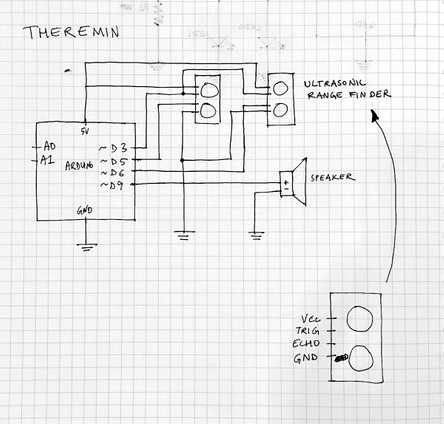 THEREMIN
ULTRASONIC
RANGE FINDER
5V
A0
A1
ARDUINO
~D3
~D5
~D6
~D9
GND
SPEAKER
+
-
VCC
TRIG
ECHO
GND